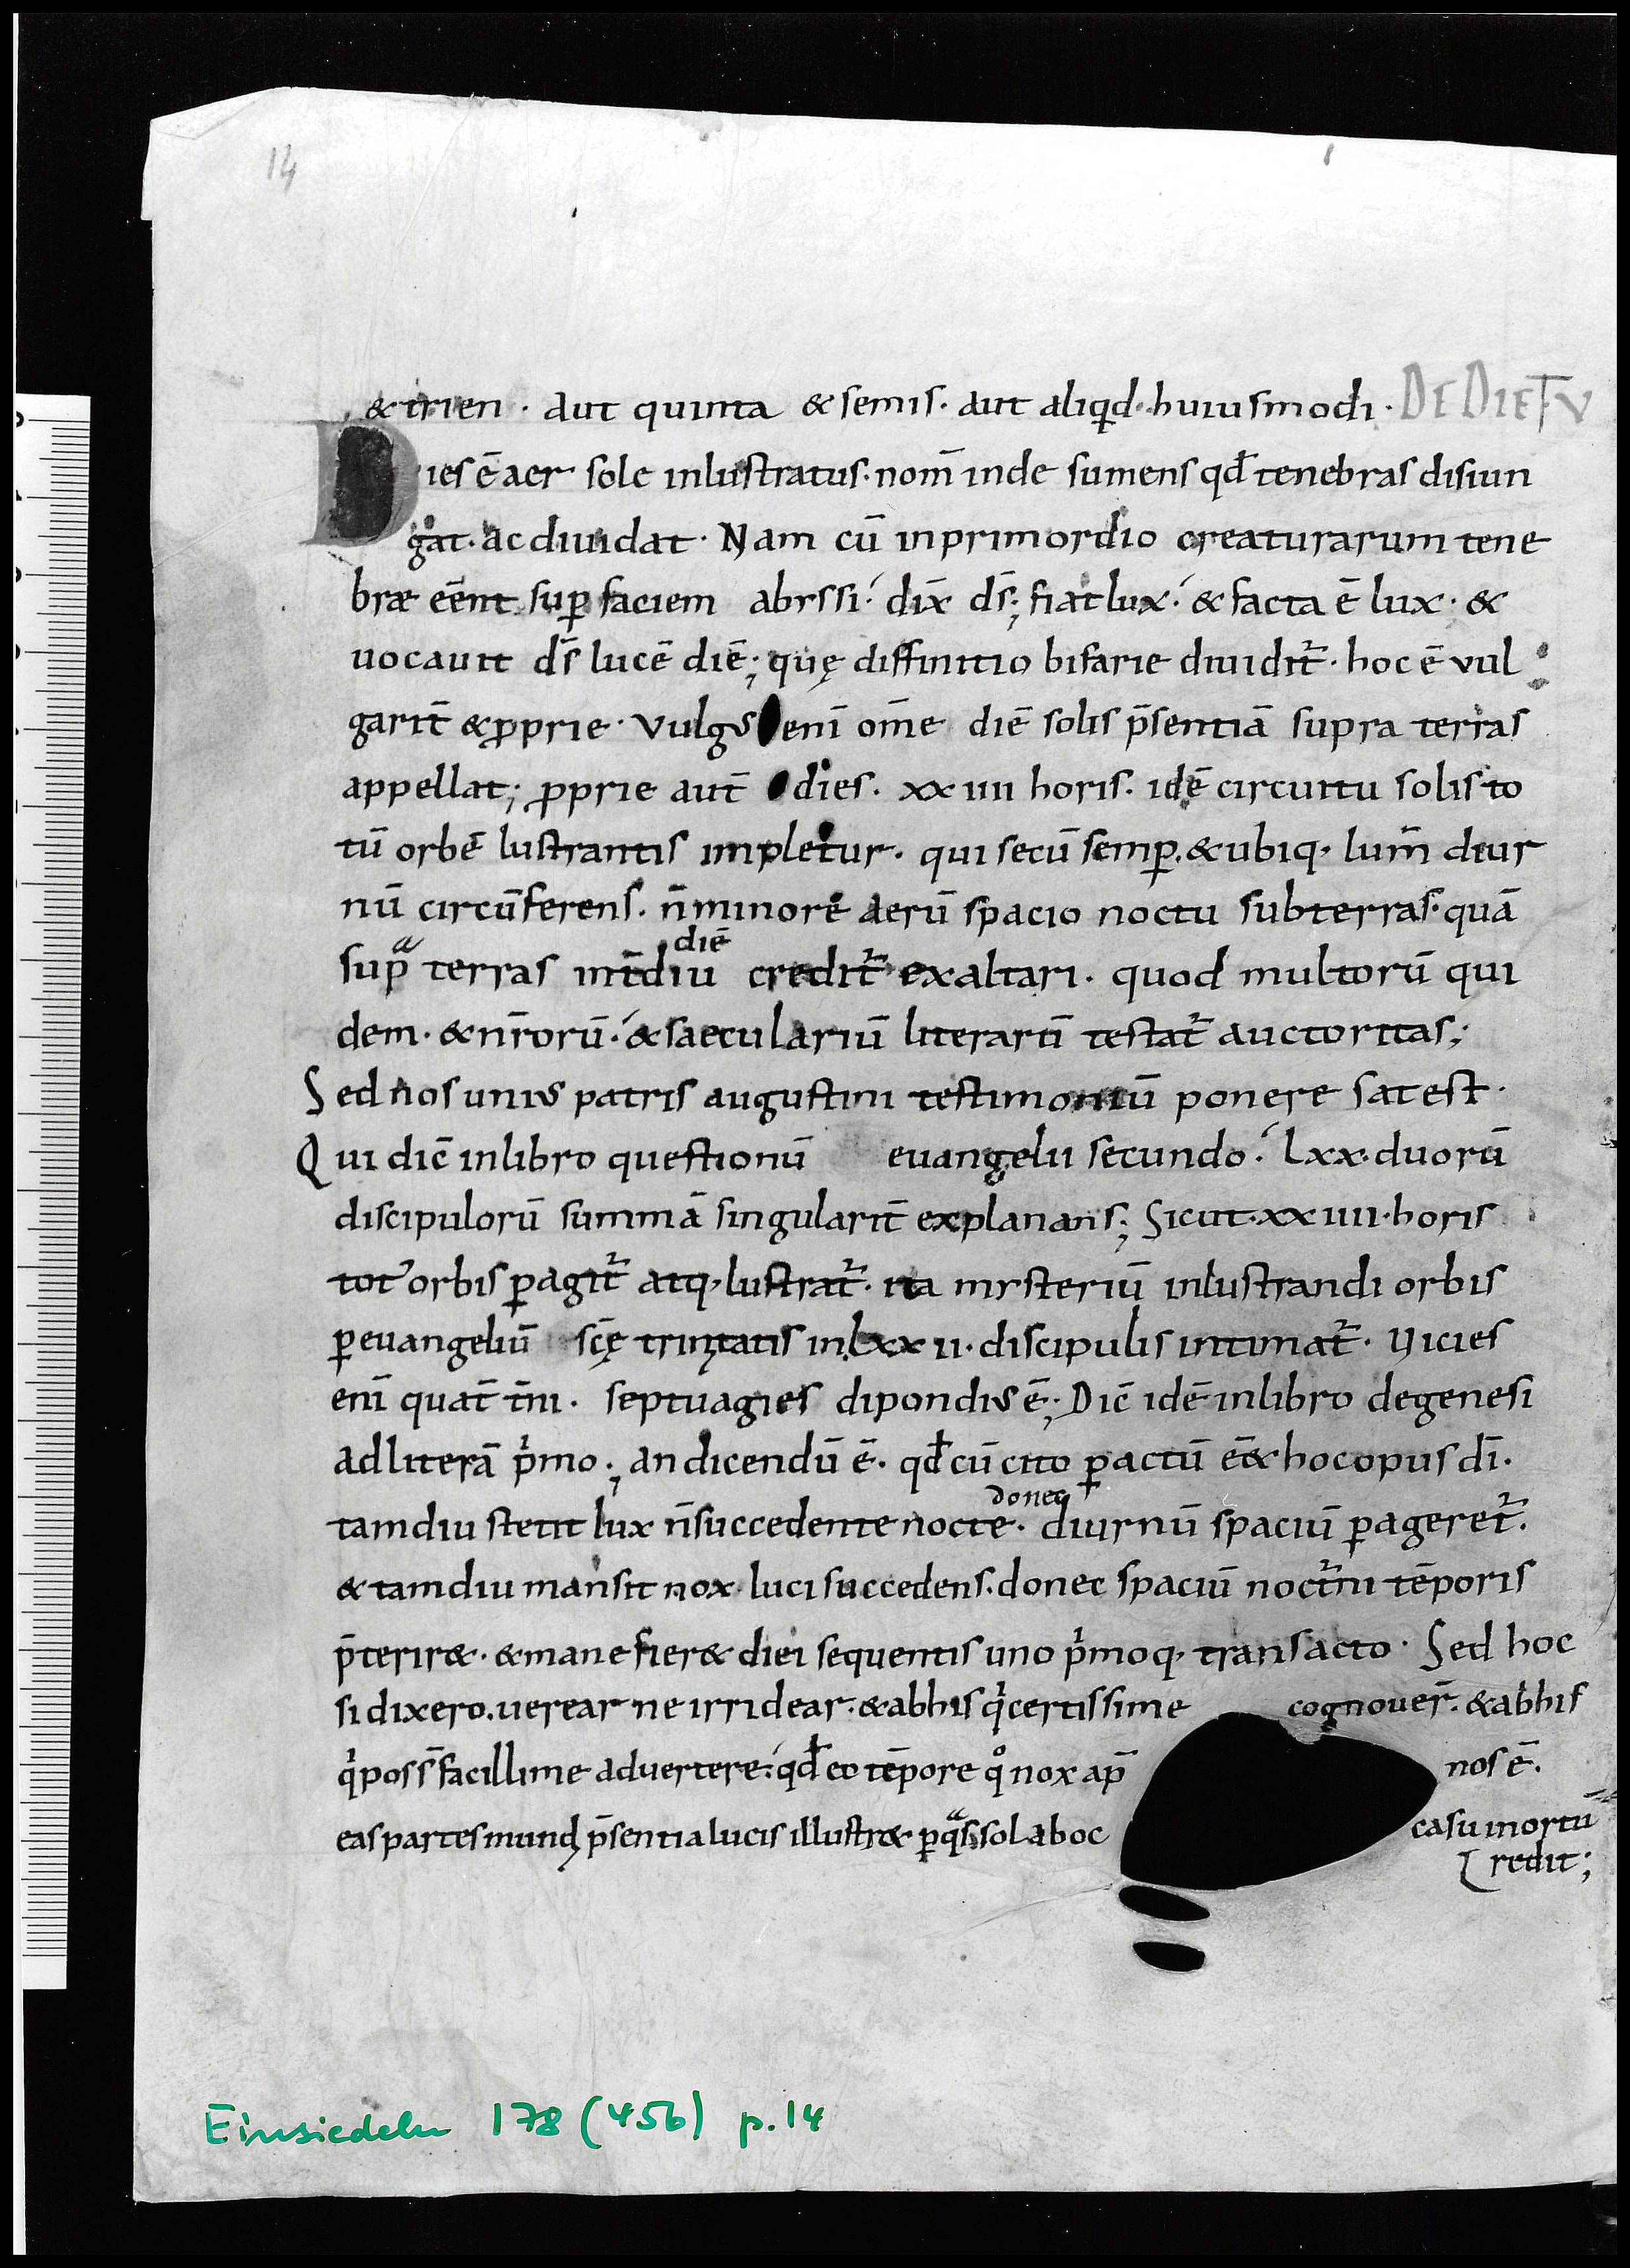 14
& trien · aut quinta & semis · aut aliqd · huiusmodi · DE DIE TV
Dies ē aer sole inlustratus · nom̄ inde sumens qđ tenebras disiun
gat · ac diuidat · Nam cū inprimordio creaturarum tene
bræ eēnt sup̱ faciem abyssi · dix̄ ds̄; fiat lux · & facta ē lux · &
uocauit ds̄ lucē diē; quę diffinitio bifarie diuidit᷑ · hoc ē vul
garit̄ & ꝓprie · Vulgus enī om̄e diē solis p̄sentiā supra terras
appellat; ꝓprie aut̄ dies · xx iiii horis · idē circuitu solis to
tū orbē lustrantis impletur · qui secū semꝑ · & ubiq· lum̄ diur
nū circūferens · n̄ minore aerū spacio noctu subterras · quā
supᵃ terras int̄diu diē credit᷑ exaltari · quod multorū qui
dem · & nr̄orū · & saeculariū literarū testat᷑ auctoritas;
Sed nos unius patris augustini testimoniū ponere sat est ·
Qui dic̄ inlibro questionū euangelii secundo · Lxx · duorū
discipulorū summā singularit̄ explanans; Sicut · xx iiii · horis
tot᾿ orbis ꝑagit᷑ atq· lustrat᷑ · ita mysteriū inlustrandi orbis
ꝑ euangeliū scę̄ trinitatis in Lxx ii · discipulis intimat᷑ · Vicies
enī quat̄ t̄ni · septuagies dipondius ē; Dic̄ idē inlibro degenesi
adliterā pͥmo; an dicendū ē · qđ cū cito ꝑactū eē& hocopus dī ·
tamdiu stetit lux n̄ succedente nocte · donec diurnū spaciū ꝑageret᷑ ·
& tamdiu mansit nox luci succedens · donec spaciū noct᷑ni tēporis
p̄terir& · & mane fier& diei sequentis uno pͥmoq· transacto · Sed hoc
si dixero · uerear ne irridear · & abhis qͥ certissime cognouer̄ · & abhis
qͥ poss̄ facillime aduertere · qđ eo tēpore qͦ nox ap̄ nos ē ·
eas partes mundi p̄sentia lucis illustr& ꝑ qᵃs sol aboc casu inortū
redit;
Einsiedeln 178 (456) p. 14